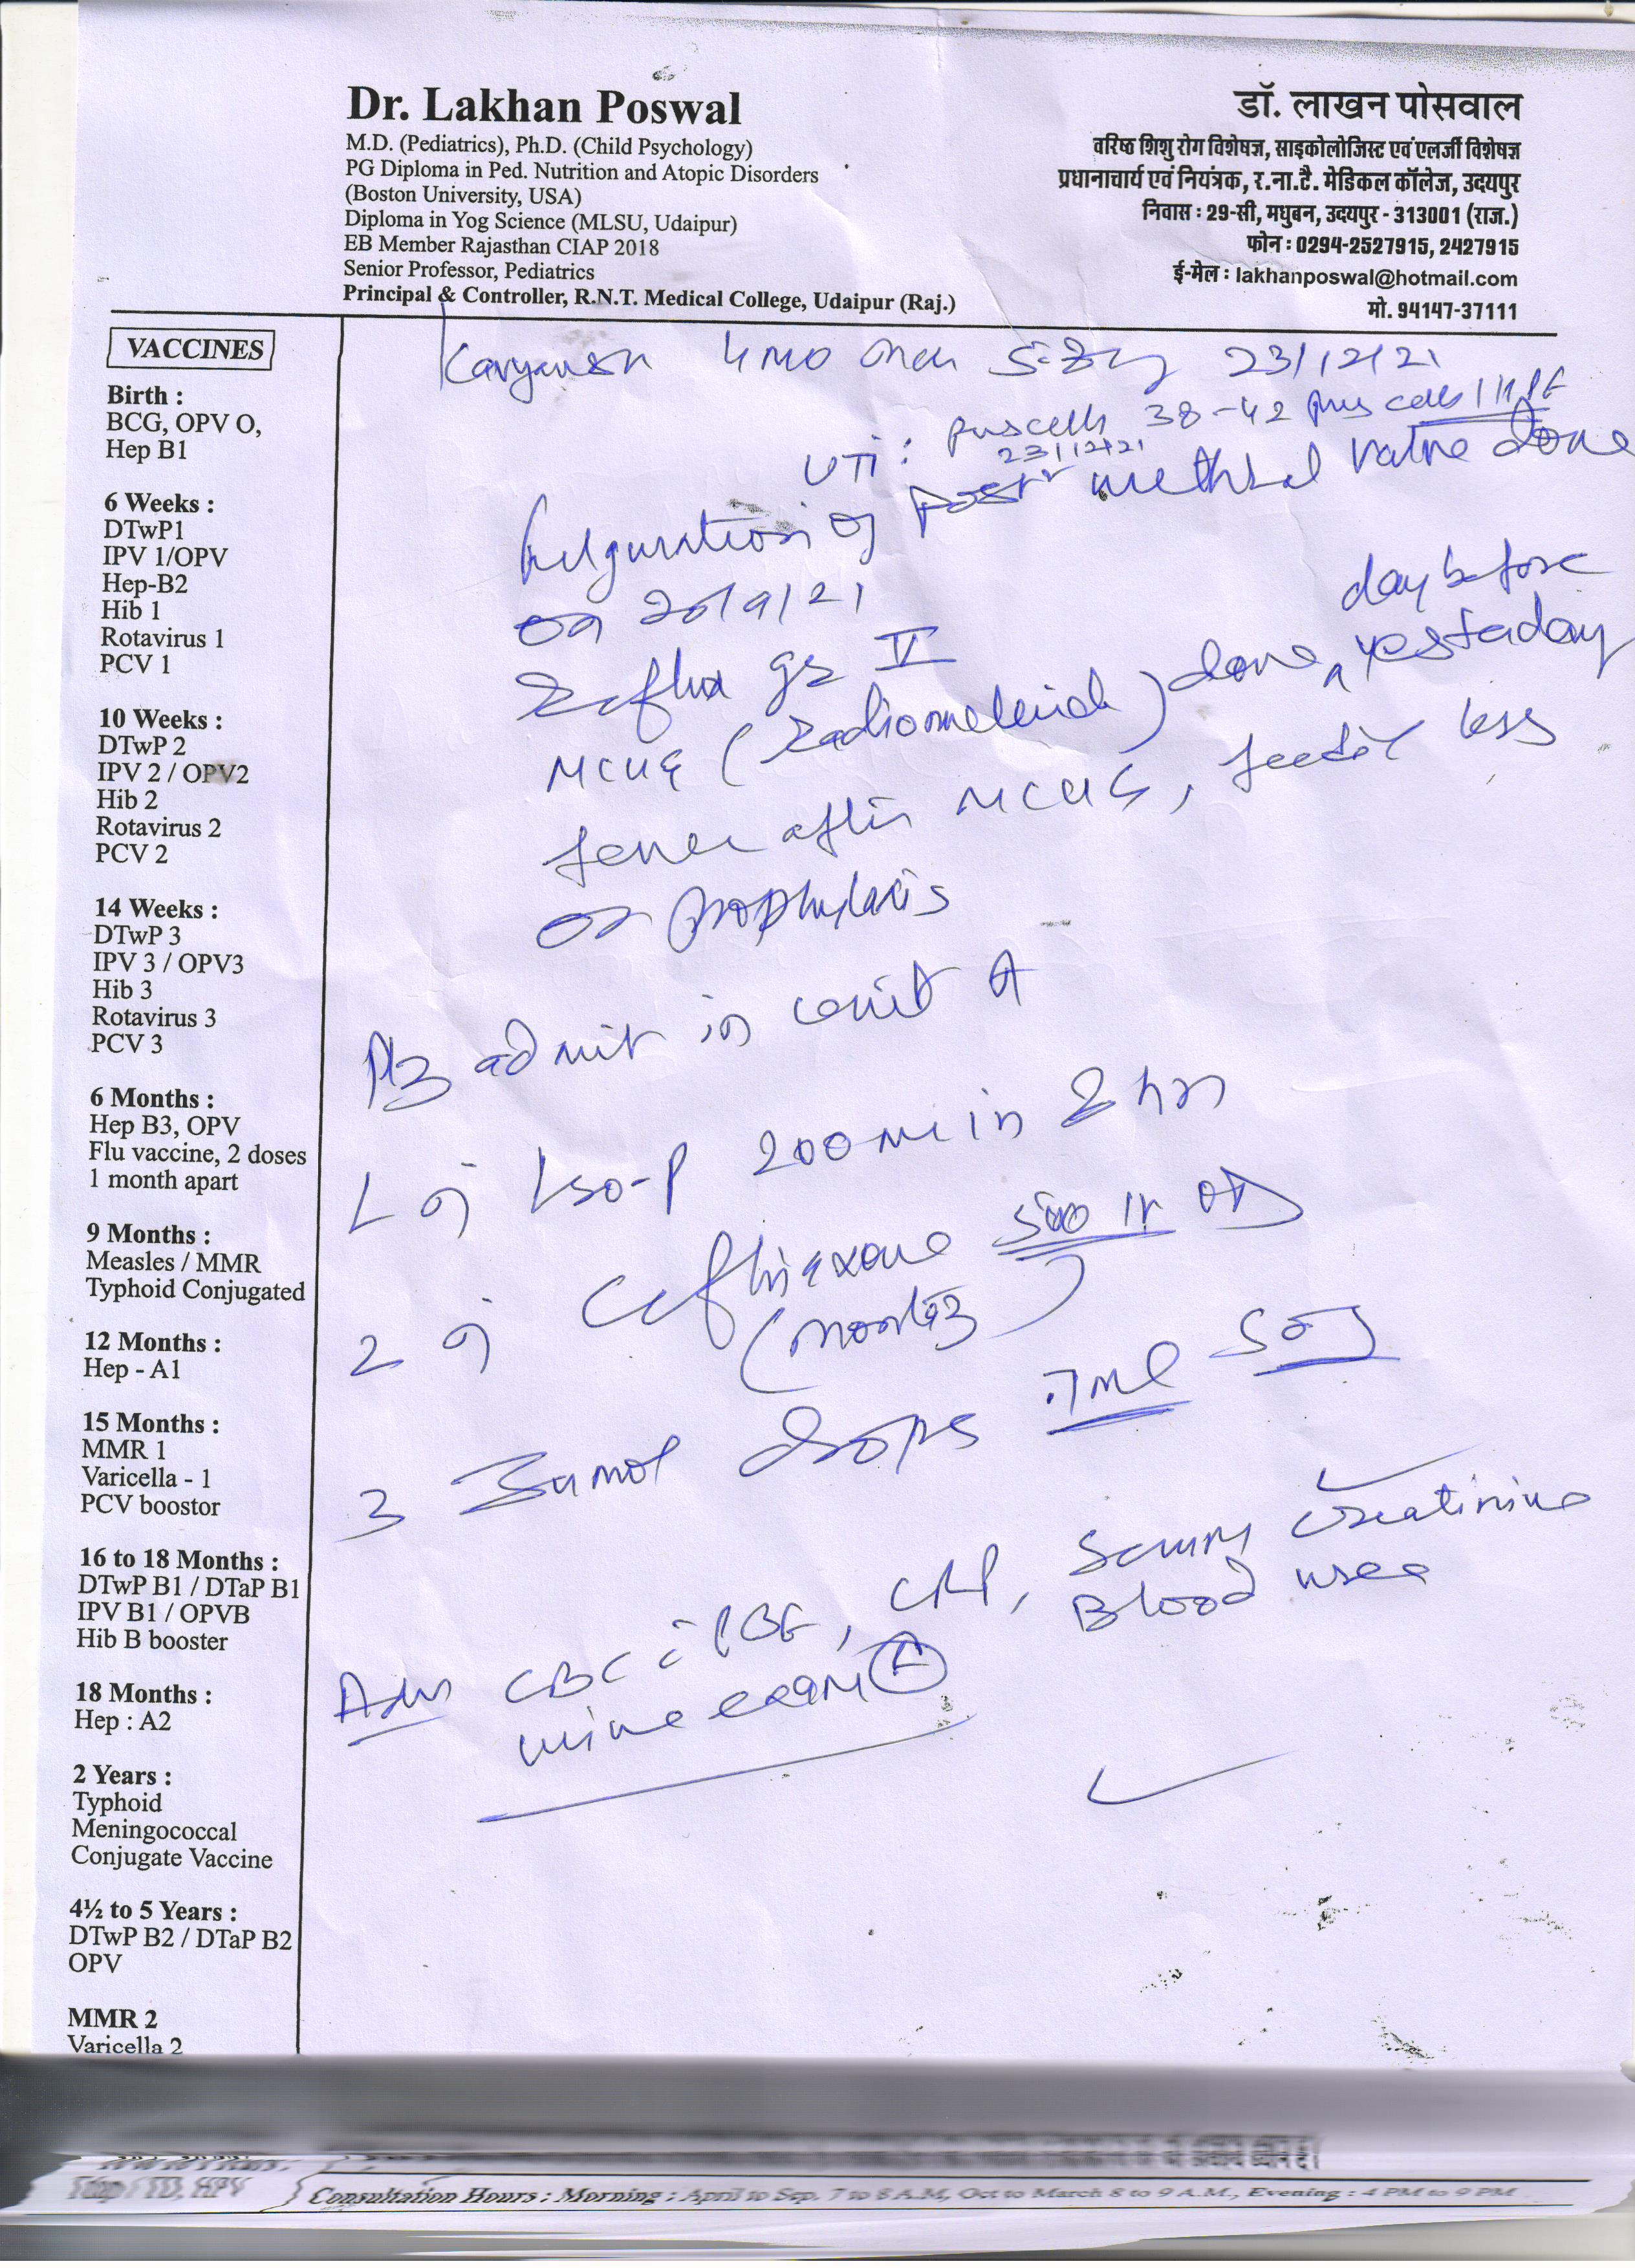 Dr. Lakhan Poswal
M.D. (Pediatrics), Ph.D. (Child Psychology)
PG Diploma in Ped. Nutrition and Atopic Disorders
(Boston University, USA)
Diploma in Yog Science (MLSU, Udaipur)
EB Member Rajasthan CIAP 2018
Senior Professor, Pediatrics
Principal & Controller, R.N.T. Medical College, Udaipur (Raj.)
डॉ. लाखन पोसवाल
वरिष्ठ शिशु रोग विशेषज्ञ, साइकोलोजिस्ट एवं एलर्जी विशेषज्ञ
प्रधानाचार्य एवं नियंत्रक, र.ना.टै. मेडिकल कॉलेज, उदयपुर
निवास : 29-सी, मधुबन, उदयपुर - 313001 (राज.)
फोन : 0294-2527915, 2427915
ई-मेल : lakhanposwal@hotmail.com
मो. 94147-37111
VACCINES
Birth :
BCG, OPV O,
Hep B1
6 Weeks :
DTwP1
IPV 1/OPV
Hep-B2
Hib 1
Rotavirus 1
PCV 1
10 Weeks :
DTwP 2
IPV 2 / OPV2
Hib 2
Rotavirus 2
PCV 2
14 Weeks :
DTwP 3
IPV 3 / OPV3
Hib 3
Rotavirus 3
PCV 3
6 Months :
Hep B3, OPV
Flu vaccine, 2 doses
1 month apart
9 Months :
Measles / MMR
Typhoid Conjugated
12 Months :
Hep - A1
15 Months :
MMR 1
Varicella - 1
PCV boostor
16 to 18 Months :
DTwP B1 / DTaP B1
IPV B1 / OPVB
Hib B booster
18 Months :
Hep : A2
2 Years :
Typhoid
Meningococcal
Conjugate Vaccine
4½ to 5 Years :
DTwP B2 / DTaP B2
OPV
MMR 2
Varicella 2
Tdap / TD, HPV
Kavyansh 4 mo 23/12/21
UTI : pus cells 38-42 pus cells / HPF
23/12/21
Fulguration of post urethral valve done
on 20/9/21
Reflux gr V
day before
MCUG ( ) done yesterday
fever after MCUG, feeding less
on prophylaxis
Plz admit in unit A
1 Iso-P 200 ml in 8 hrs
2 Ceftriaxone 500 IV OD
3 drops .7ml SOS
Adv CBC c PBF, CRP, Serum Creatinine
Blood urea
urine exam
Consultation Hours : Morning : April to Sep. 7 to 8 A.M, Oct to March 8 to 9 A.M., Evening : 4 PM to 9 PM